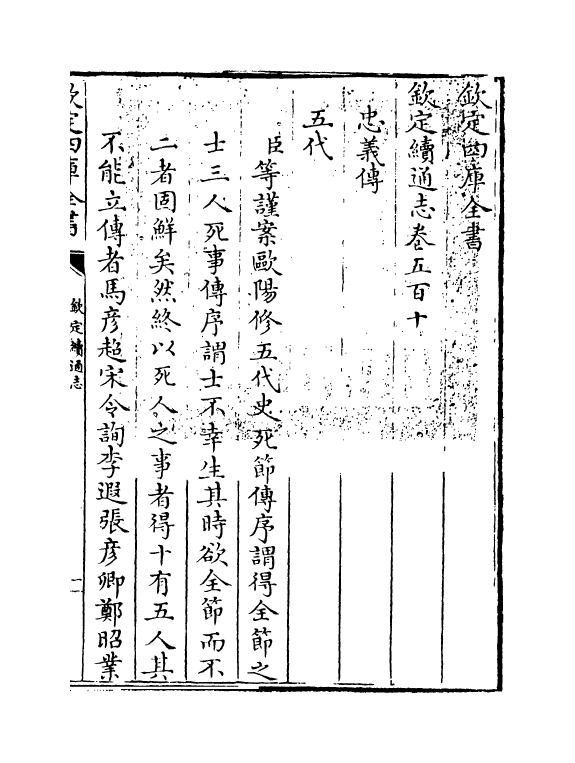 欽定四庫全書
欽定續通志卷五百十
忠義傳
五代
臣等謹案歐陽修五代史死節傳序謂得全節之
士三人死事傳序謂士不幸生其時欲全節而不
二者固鮮矣然終以死人之事者得十有五人其
不能立傳者馬彦超宋令詢李遐張彦卿鄭昭業
欽定四庫全書
欽定續通志
一